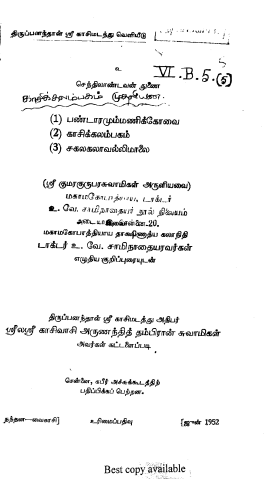 திருப்பனந்தாள் ஸ்ரீ காசிமடத்து வெளியீடு
உ
VI. B. 5. (5)
செந்திலாண்டவன் துணை
(1) பண்டாரமும்மணிக்கோவை
(2) காசிக்கலம்பகம்
(3) சகலகலாவல்லிமாலை
(ஸ்ரீ குமரகுருபரசுவாமிகள் அருளியவை)
மகாமகோபாத்தியாய, டாக்டர்
உ. வே. சாமிநாதையர் நூல் நிலையம்
அடையாறு, சென்னை-20.
மகாமகோபாத்தியாய தாக்ஷிணாத்ய கலாநிதி
டாக்டர் உ. வே. சாமிநாதையரவர்கள்
எழுதிய குறிப்புரையுடன்
திருப்பனந்தாள் ஸ்ரீ காசிமடத்து அதிபர்
ஸ்ரீலஸ்ரீ காசிவாசி அருணந்தித் தம்பிரான் சுவாமிகள்
அவர்கள் கட்டளைப்படி
சென்னை, கபீர் அச்சுக்கூடத்திற்
பதிப்பிக்கப் பெற்றன.
நந்தன—வைகாசி] உரிமைப்பதிவு [ஜூன் 1952
Best copy available